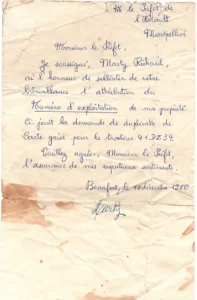 Mr le Préfet de
l'Hérault
Montpellier
Monsieur le Préfet,
Je soussigné, Martz Richard,
ai l'honneur de solliciter de votre
bienveillance l'attribution du
Numéro d'exploitation de ma propriété
Ci joint la demande de duplicata de
Carte grise pour le tracteur 41DZ34.
Veuillez agréer, Monsieur le Préfet,
l'assurance de mes respectueux sentiments.
Beaufort, le 10 décembre 1950
Martz